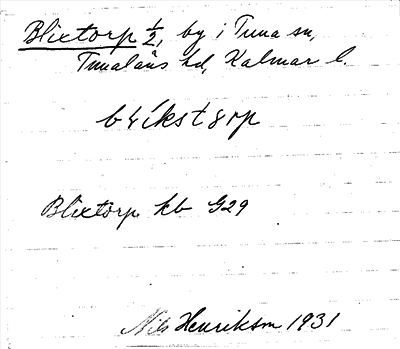 Blixtorp 1/2, by i Tuna sn,
Tunaläns hd, Kalmar l.
Blixtorp kb G29
Nils Henriksson 1931